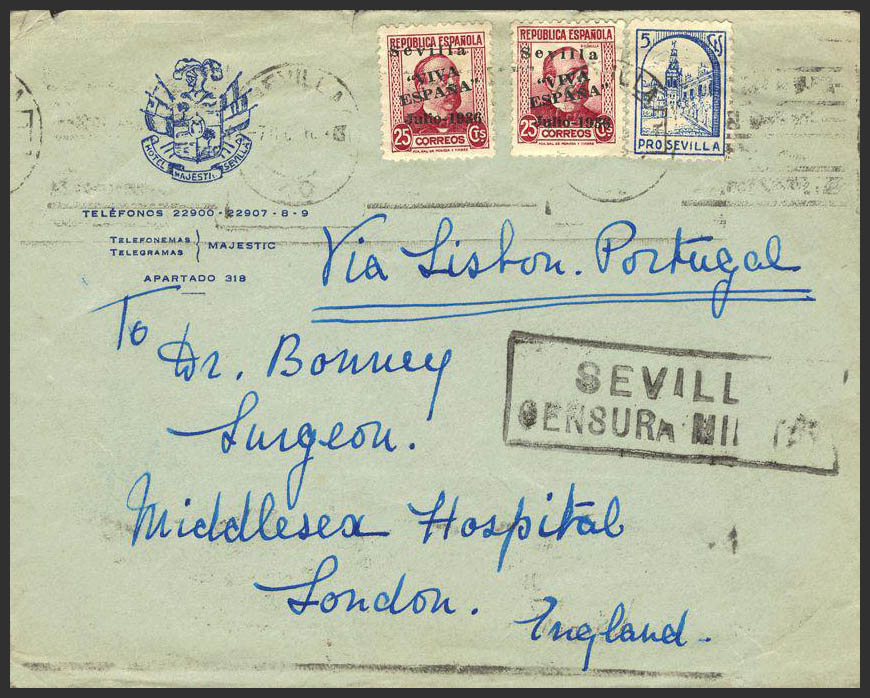 REPUBLICA ESPAÑOLA
Sevilla
"VIVA
ESPAÑA"
Julio-1936
25 CORREOS Cts
REPUBLICA ESPAÑOLA
Sevilla
"VIVA
ESPAÑA"
Julio-1936
25 CORREOS Cts
5 Cts
PRO SEVILLA
SEVILLA
HOTEL MAJESTIC SEVILLA
TELÉFONOS 22900-22907-8-9
TELEFONEMAS
TELEGRAMAS } MAJESTIC
APARTADO 318
Via Lisbon. Portugal
To
Dr. Bonney
Surgeon.
Middlesex Hospital
London.
England.
SEVILL
CENSURA MILITAR